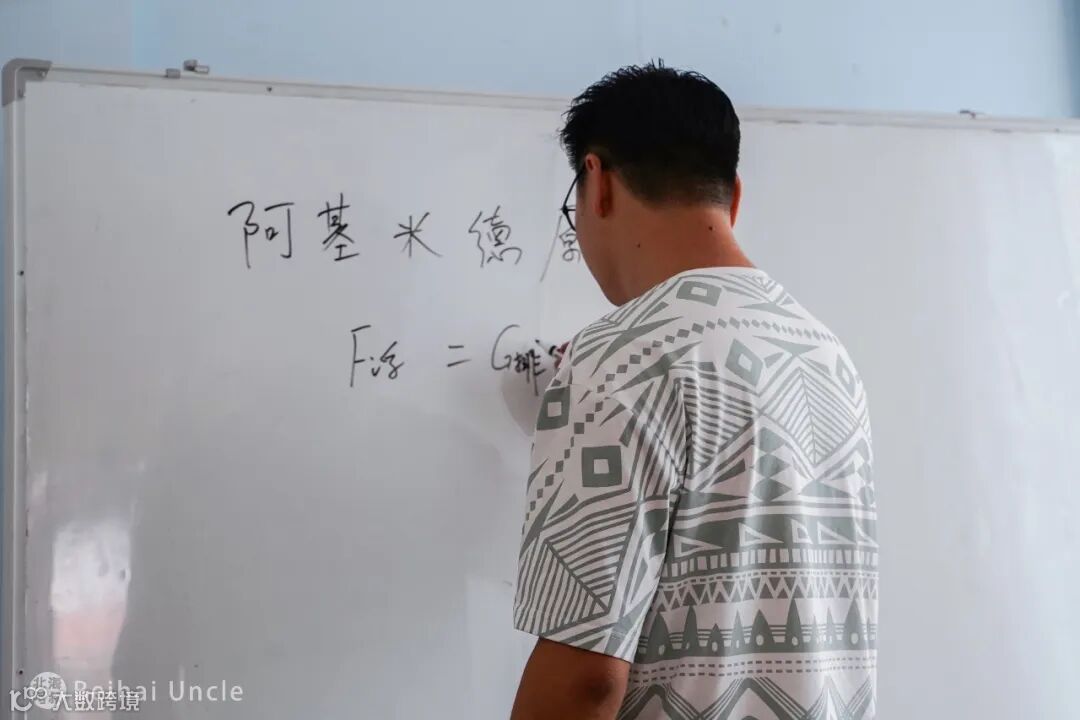 阿基米德原
F浮 = G排
Beihai Uncle
大数跨境